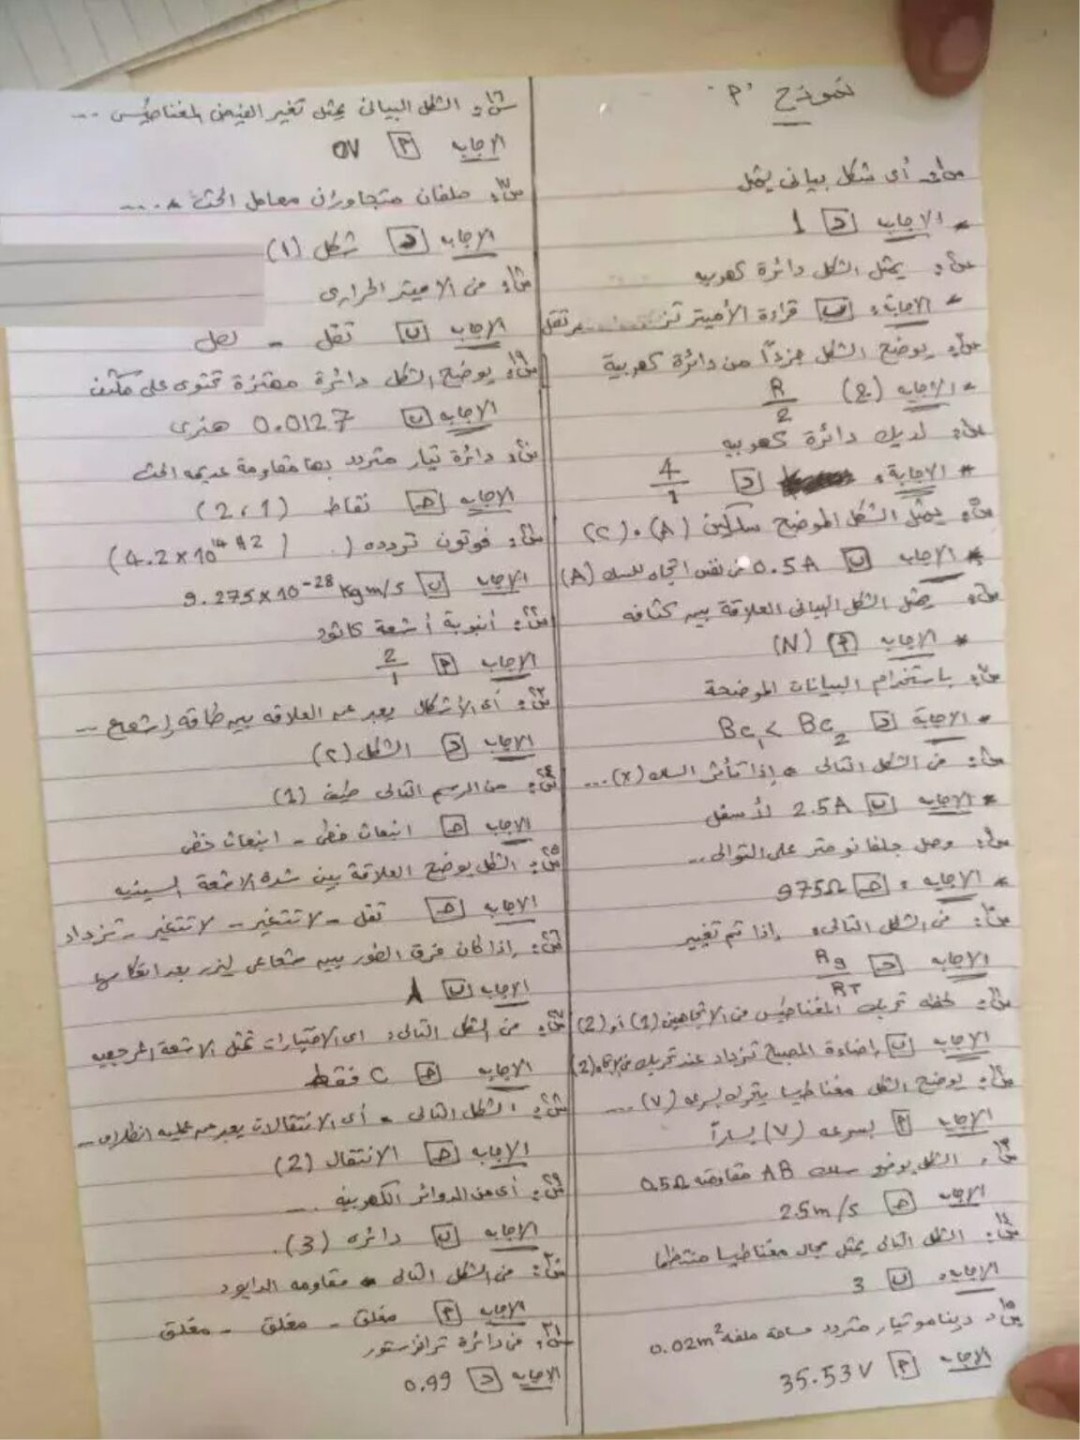 نموذج "P"
س١: أى شكل بيانى يمثل
* الإجابه [د] 1
س٢: يمثل الشكل دائرة كهربيه
* الإجابة: [ب] قراءة الأميتر تقل
س٣: يوضح الشكل جزءاً من دائرة كهربية
* الإجابه (ج) R/2
س٤: لديك دائرة كهربيه
* الإجابة: [د] 4/1
س٥: يمثل الشكل الموضح سلكين (A)، (C)
* الإجابه [ب] 0.5A فى نفس اتجاه السلك (A)
س٦: يمثل الشكل البيانى العلاقة بين كثافه
* الإجابه [P] (N)
س٧: باستخدام البيانات الموضحة
* الإجابة [د] Bc₁ < Bc₂
س٨: فى الشكل التالى، إذا تأثر السلك (x) ...
* الإجابه [ب] 2.5A لأسفل
س٩: وصل جلفانومتر على التوالى ..
* الإجابه: [حـ] 975Ω
س١٠: فى الشكل التالى، إذا تم تغيير
الإجابه [د] Rg/RT
س١١: لحظه تحريك المغناطيس فى الاتجاهين (1) أو (2)
الإجابه [ب] إضاءة المصباح تزداد عند تحريك (2)
س١٢: يوضح الشكل مغناطيسا يتحرك بسرعه (V) ....
الإجابه [P] بسرعه (V) يساراً
س١٣: الشكل يوضح سلك AB مقاومته 0.5Ω
الإجابه [حـ] 25m/s
س١٤: الشكل التالى يمثل مجال مغناطيسا منتظما
الإجابه: [ب] 3
س١٥: دينامو تيار متردد مساحة ملفه 0.02m²
الإجابه [P] 35.53V
س١٦: الشكل البيانى يمثل تغير الفيض المغناطيسى ...
الإجابه [P] 0V
س١٧: ملفان متجاوران معامل الحث ....
الإجابه [د] شكل (1)
س١٨: فى الاميتر الحرارى
الإجابه [ب] تقل -
س١٩: يوضح الشكل دائرة مهتزة تحتوى على مكثف
الإجابه [ب] 0.0127 هنرى
س٢٠: دائرة تيار متردد بها مقاومة عديمه الحث
الإجابه [حـ] نقاط (2،1)
س٢١: فوتون تردده ( (4.2×10¹⁴ Hz)
الإجابه [ب] 9.275×10⁻²⁸ Kg m/s
س٢٢: أنبوبة أشعة كاثود
الإجابه [P] 2/1
س٢٣: أى الأشكال يعبر عن العلاقه بين طاقه إشعاع ...
الإجابه [د] الشكل (٢)
س٢٤: من الرسم التالى طيف (1)
الإجابه [حـ] انبعاث خطى - انبعاث خطى
س٢٥: الشكل يوضح العلاقة بين شدة الاشعة السينيه
الإجابه [حـ] تقل - لا تتغير - لا تتغير - تزداد
س٢٦: إذا كان فرق الطور بين شعاعى ليزر بعد انعكاسها
الإجابه [ب] λ
س٢٧: من الشكل التالى، اى الاختيارات تمثل الاشعة المرجعيه
الإجابه [حـ] C فقط
س٢٨: الشكل التالى، أى الانتقالات يعبر عن عمليه انطلاق ..
الإجابه [حـ] الانتقال (2)
س٢٩: أى من الدوائر الكهربيه ....
الإجابه [ب] دائره (3).
س٣٠: من الشكل التالى، مقاومه الدايود
الإجابه [P] مغلق - مغلق - مغلق
س٣١: فى دائرة ترانزستور
الإجابه [د] 0.99